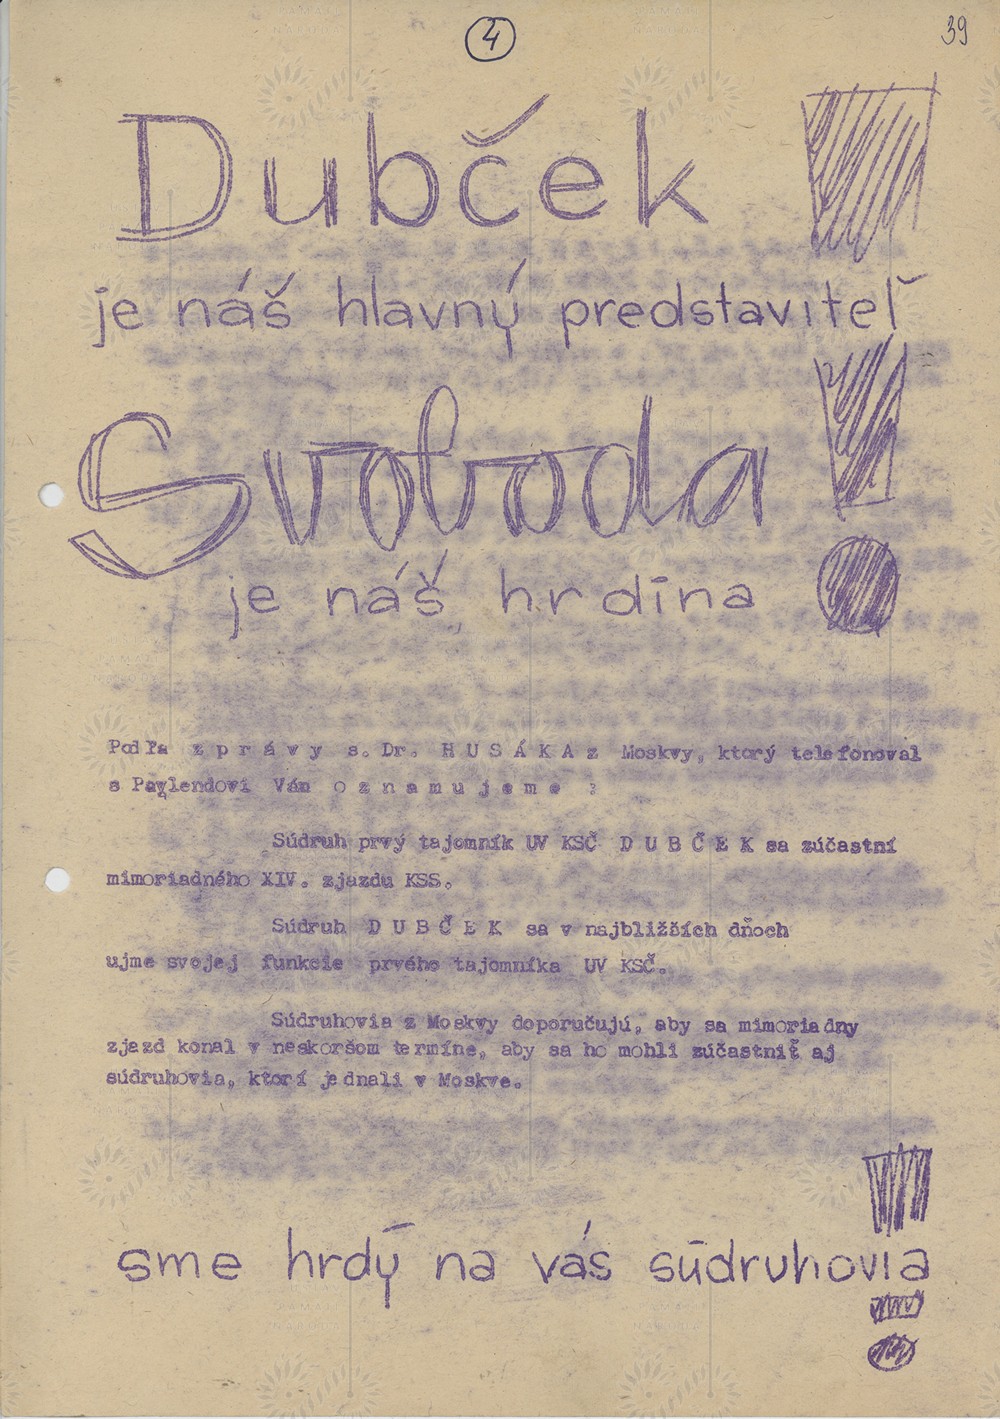 4
39
Dubček!
je náš hlavný predstaviteľ
Svoboda!
je náš hrdina
Podľa z p r á v y s. Dr. H U S Á K A z Moskvy, ktorý telefonoval
s Pavlendovi Vám o z n a m u j e m e :
Súdruh prvý tajomník UV KSČ D U B Č E K sa zúčastní
mimoriadného XIV. zjazdu KSS.
Súdruh D U B Č E K sa v najbližších dňoch
ujme svojej funkcie prvého tajomníka UV KSČ.
Súdruhovia z Moskvy doporučujú, aby sa mimoriadny
zjazd konal v neskoršom termíne, aby sa ho mohli zúčastniť aj
súdruhovia, ktorí jednali v Moskve.
sme hrdý na vás súdruhovia!